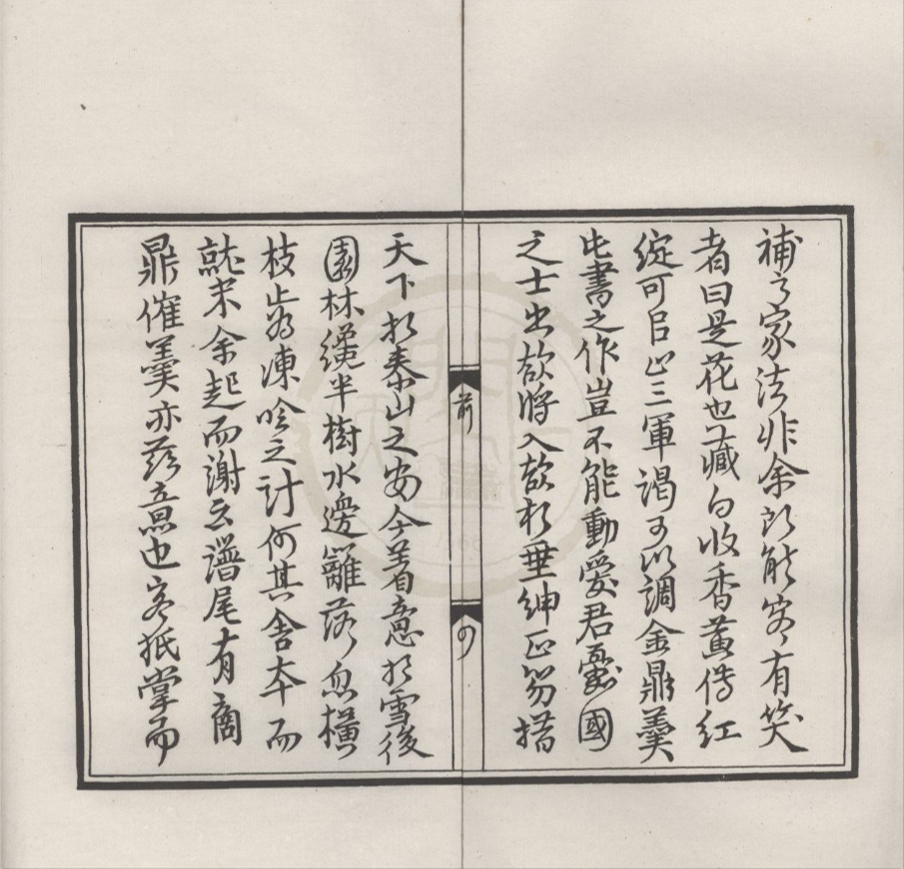 補之家法非余所能客有笑
者曰是花也藏白收香黃傳紅
綻可㠯止三軍渴可以調金鼎羹
此書之作豈不能動愛君憂國
之士出欲將入欲相垂紳正笏措
天下於泰山之安今着意於雪後
園林纔半樹水邊籬落忽橫
枝止為凍吟之計何其舍本而
就末余起而謝云譜尾有商
鼎催羹亦茲意也客抵掌而
前
四